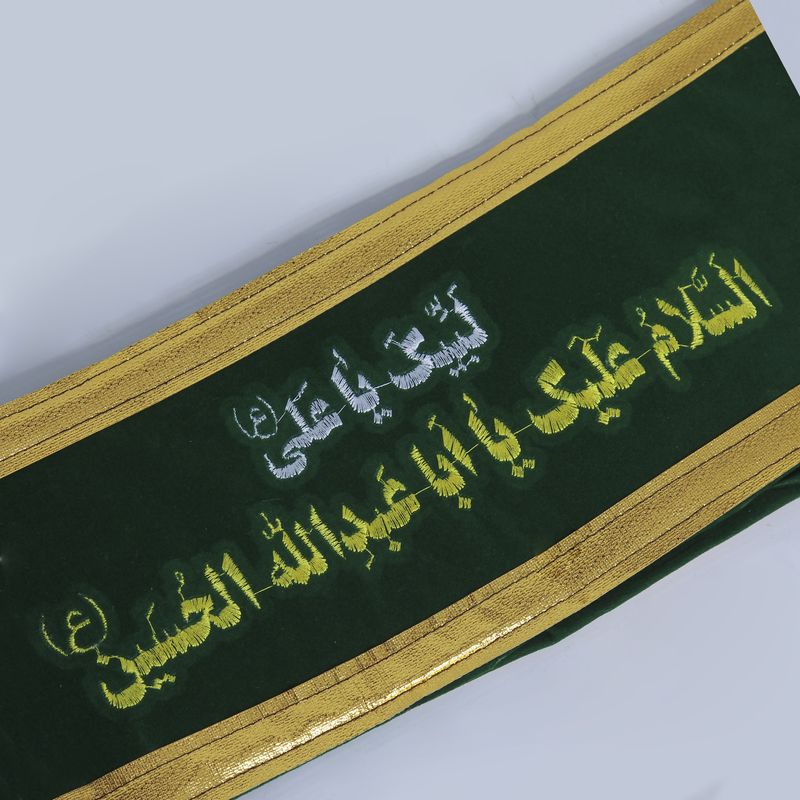 لَبَّیک یا علی (ع)
السَّلامُ عَلَیکَ یا أبا عَبدِاللّٰه الحُسَین (ع)